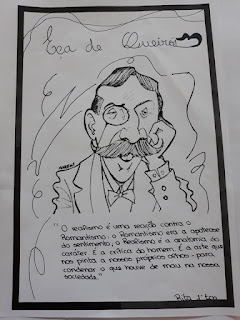 Eça de Queirós
"O realismo é uma reação contra o
Romantismo: o Romantismo era a apoteose
do sentimento; o Realismo é a anatomia do
caráter. É a crítica do homem. É a arte que
nos pinta a nossos próprios olhos - para
condenar o que houver de mau na nossa
sociedade."
Rita